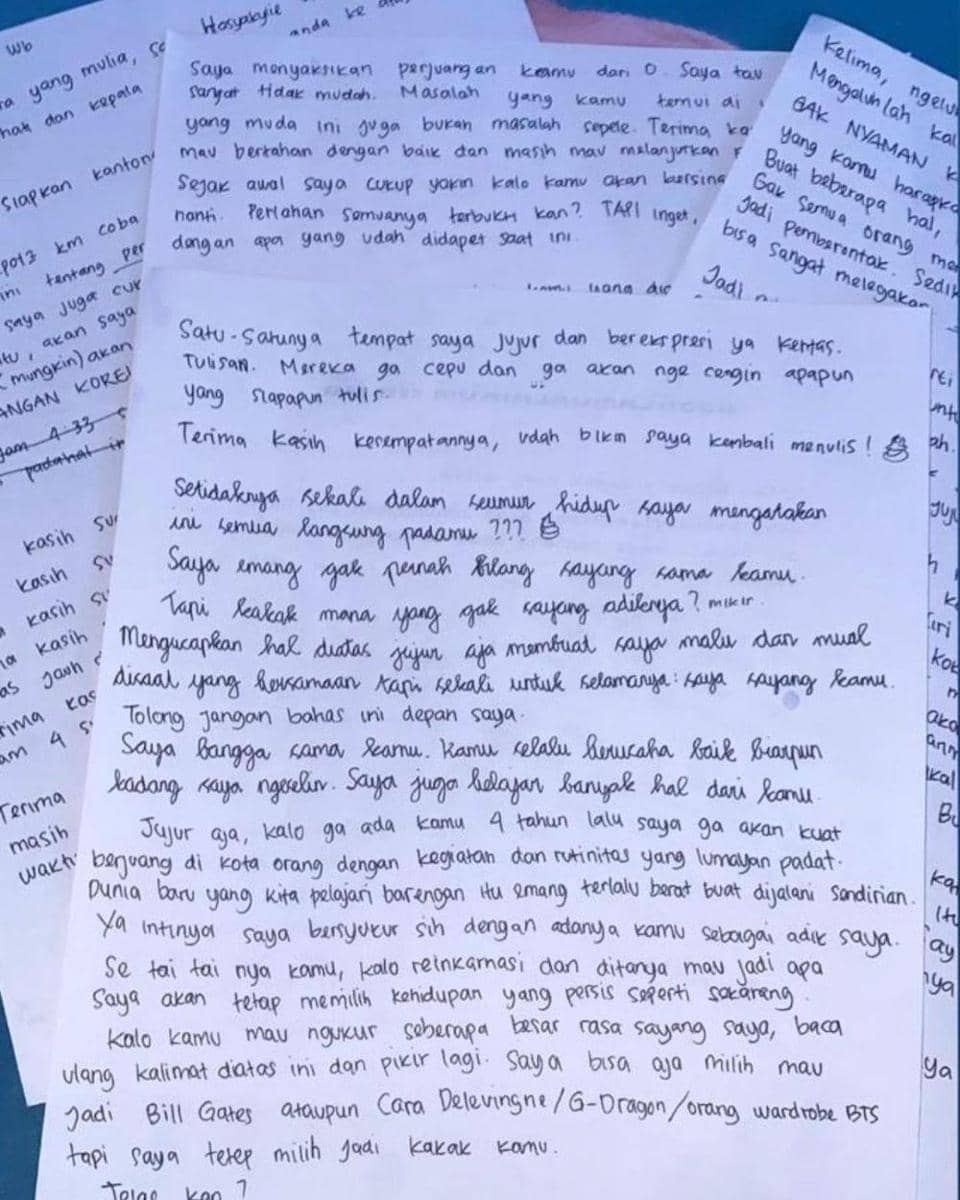 Wb
ra yang mulia,
hak dan kepala
siapkan kanton
coba
ini tentang per
saya juga cuk
itu, akan saya
(mungkin) akan
ANGAN KOREA
jam 4.33
padahal
kasih
kasih
kasih
kasih
jauh
rima kas
am 4
Terima
masih
wakt
Hosyabyie
anda ke
Saya menyaksikan perjuangan kamu dari 0. Saya tau
sangat tidak mudah. Masalah yang kamu temui di
yang muda ini juga bukan masalah sepele. Terima ka
mau bertahan dengan baik dan masih mau melanjutkan
Sejak awal saya cukup yakin kalo kamu akan bersina
nanti. Perlahan semuanya terbukti kan? TAPI inget,
dengan apa yang udah didapet saat ini.
Kelima, ngelu
Mengaluhlah kal
GAK NYAMAN k
yang kamu harapka
Buat beberapa hal,
Gak semua orang me
Jadi pemberontak. Sedik
bisa sangat melegakan
Jadi
Satu-satunya tempat saya jujur dan berekspresi ya kertas.
Tulisan. Mereka ga cepu dan ga akan nge cengin apapun
yang siapapun tulis.
Terima kasih kesempatannya, udah bikin saya kembali menulis!
Setidaknya sekali dalam seumur hidup saya mengatakan
ini semua langsung padamu ???
Saya emang gak pernah bilang sayang sama kamu.
Tapi kakak mana yang gak sayang adiknya? mikir.
Mengucapkan hal diatas jujur aja membuat saya malu dan mual
disaat yang bersamaan tapi sekali untuk selamanya: saya sayang kamu.
Tolong jangan bahas ini depan saya.
Saya bangga sama kamu. Kamu selalu berusaha baik biarpun
kadang saya ngeselin. Saya juga belajar banyak hal dari kamu.
Jujur aja, kalo ga ada kamu 4 tahun lalu saya ga akan kuat
berjuang di kota orang dengan kegiatan dan rutinitas yang lumayan padat.
Dunia baru yang kita pelajari barengan itu emang terlalu berat buat dijalani sendirian.
Ya intinya saya bersyukur sih dengan adanya kamu sebagai adik saya.
Se tai tai nya kamu, kalo reinkarnasi dan ditanya mau jadi apa
saya akan tetap memilih kehidupan yang persis seperti sekarang.
kalo kamu mau ngukur seberapa besar rasa sayang saya, baca
ulang kalimat diatas ini dan pikir lagi. Saya bisa aja milih mau
jadi Bill Gates ataupun Cara Delevingne/G-Dragon/orang wardrobe BTS
tapi saya tetep milih jadi kakak kamu.
kan ?
ya